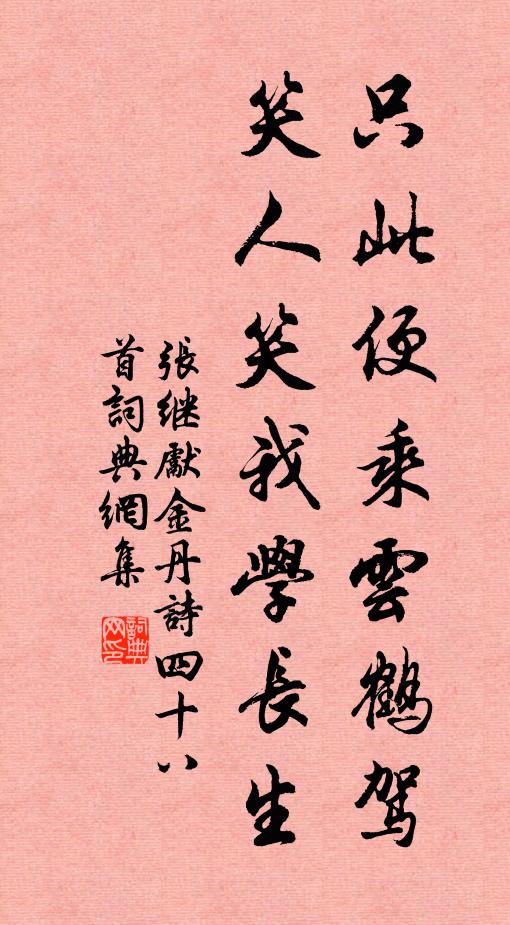 只此便乘雲鶴駕
笑人笑我學長生
張継獻金丹詩四十八
首詞典網集
詞典网印